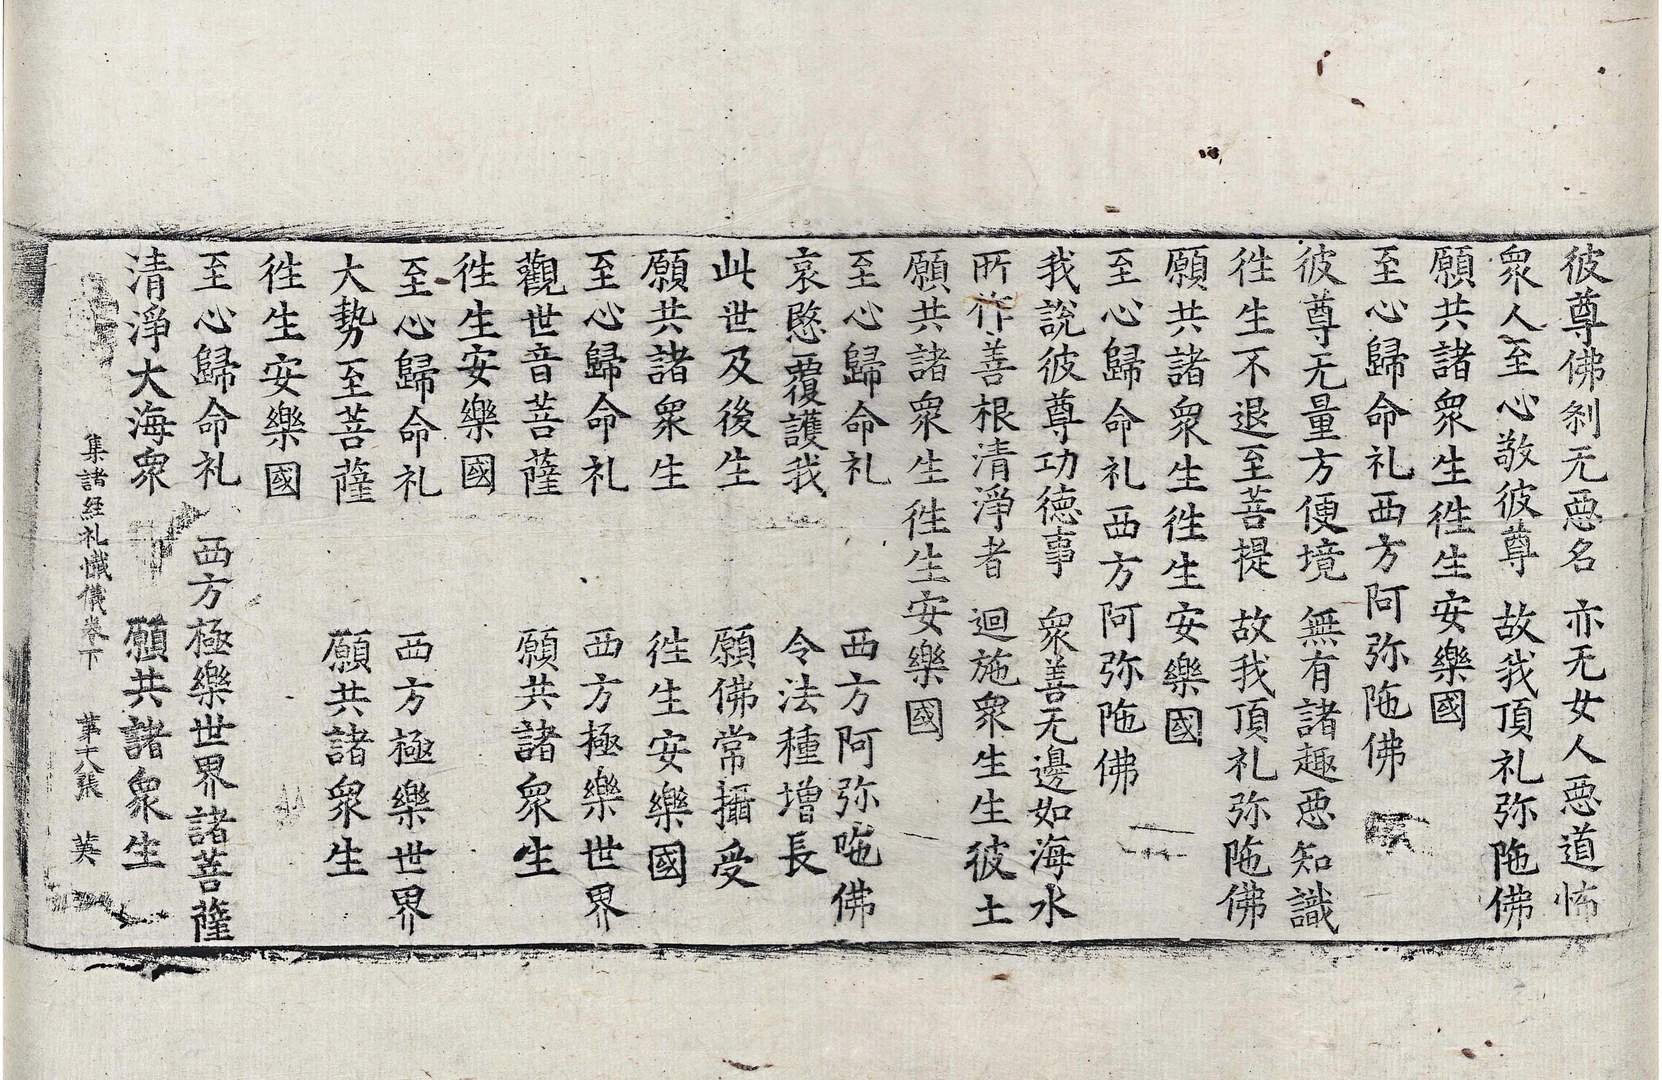 彼尊佛刹无惡名　亦无女人惡道怖
衆人至心敬彼尊　故我頂礼弥陁佛
願共諸衆生徃生安樂國
至心歸命礼西方阿弥陁佛
彼尊无量方便境　無有諸趣惡知識
徃生不退至菩提　故我頂礼弥陁佛
願共諸衆生徃生安樂國
至心歸命礼西方阿弥陁佛
我說彼尊功德事　衆善无邊如海水
所作善根清淨者　迴施衆生生彼土
願共諸衆生徃生安樂國
至心歸命礼　西方阿弥陁佛
哀愍覆護我　令法種增長
此世及後生　願佛常攝受
願共諸衆生　徃生安樂國
至心歸命礼　西方極樂世界
觀世音菩薩　願共諸衆生
徃生安樂國
至心歸命礼　西方極樂世界
大勢至菩薩　願共諸衆生
徃生安樂國
至心歸命礼　西方極樂世界諸菩薩
清淨大海衆　願共諸衆生
集諸經礼懺儀卷下　第十八張　英